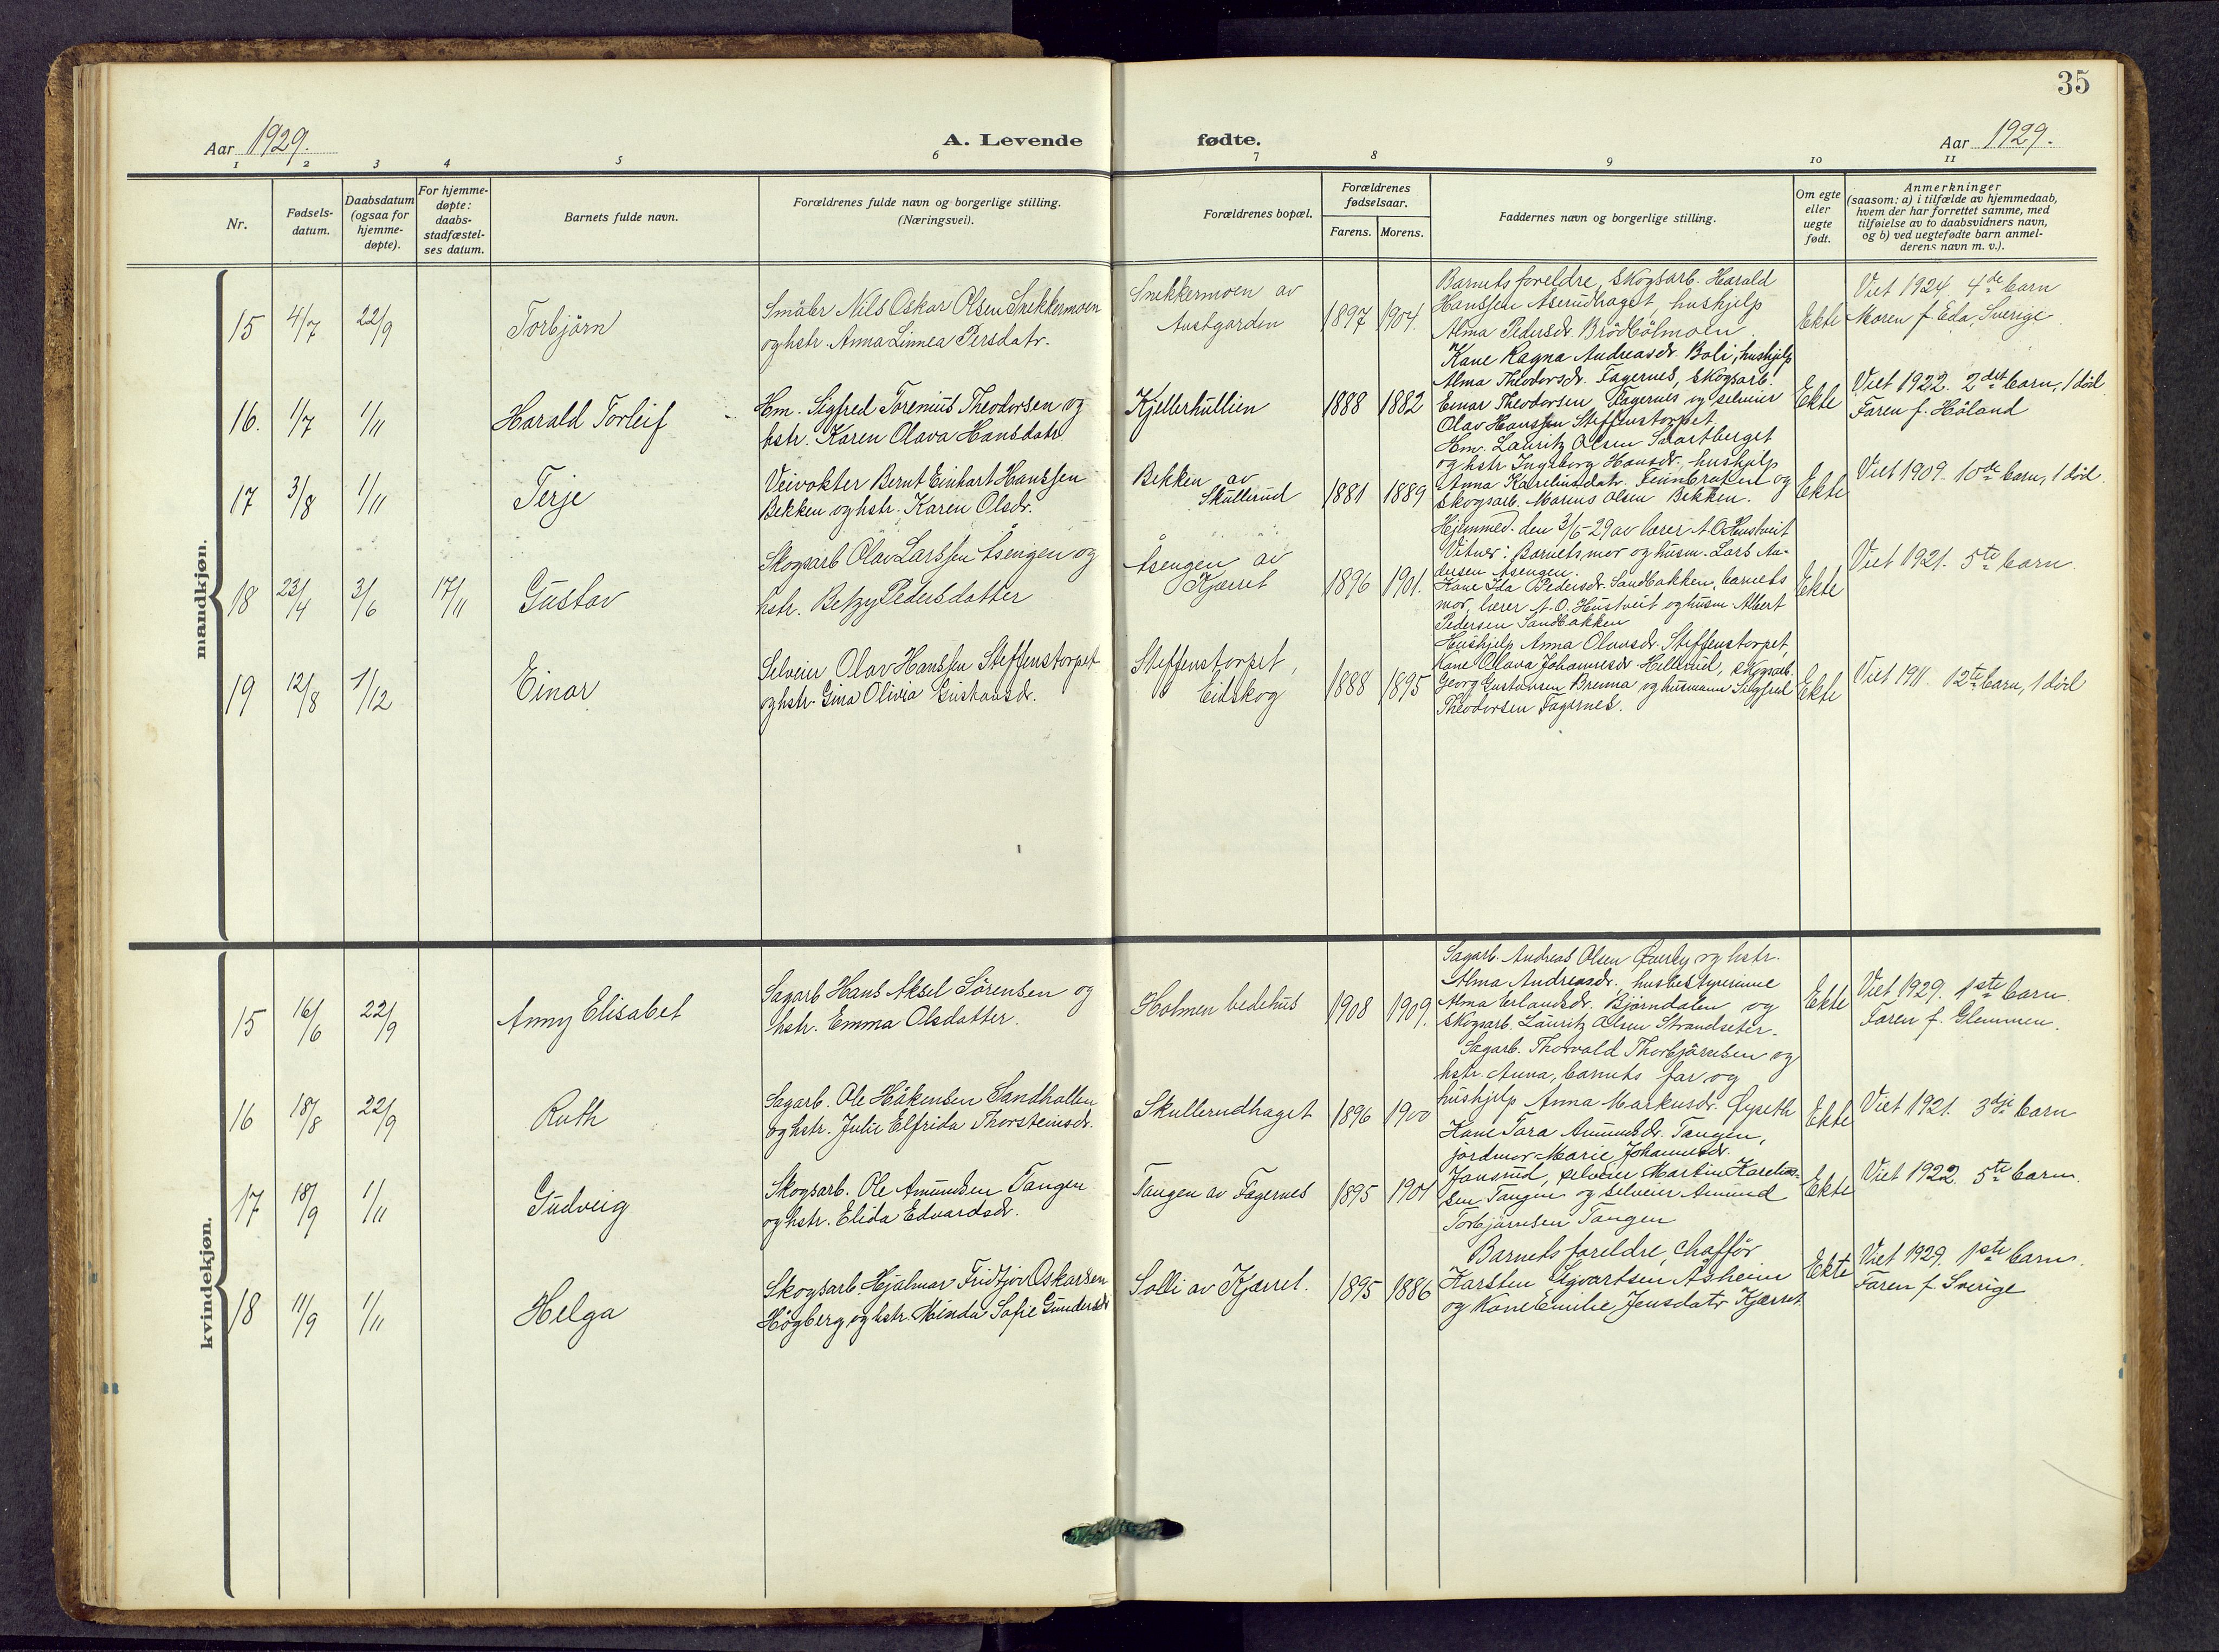 35
Aar 1929.
A. Levende fødte.
Aar 1929.
1 2 3 4 5 6 7 8 9 10 11
Nr.
Fødsels-
datum.
Daabsdatum
(ogsaa for
hjemme-
døpte).
For hjemme-
døpte:
daabs-
stadfæstel-
ses datum.
Barnets fulde navn.
Forældrenes fulde navn og borgerlige stilling.
(Næringsvei).
Forældrenes bopæl.
Forældrenes
fødselsaar.
Farens. Morens.
Faddernes navn og borgerlige stilling.
Om egte
eller
uegte
født.
Anmerkninger
(saasom: a) i tilfælde av hjemmedaab,
hvem der har forrettet samme, med
tilføielse av to daabsvidners navn,
og b) ved uegtefødte barn anmel-
derens navn m. v.).
mandkjøn.
15 4/7 22/9 Torbjörn
Småbr Nils Oskar Olsen Snekkermoen
og hstr. Anna Linnea Persdatr.
Snekkermoen av
Austgarden
1897 1904.
Barnets foreldre, skogsarb. Harald
Hanssen Aserudhaget, hushjelp
Alma Pedersdr. Brödbölmoen.
Ekte
Viet 1924. 4de barn
Moren f. Eda, Sverige
16. 1/7 1/11 Harald Torleif
Hm. Sigfred Torenius Theodorsen og
hstr. Karen Olava Hansdatr
Kjellerhullien
1888 1882
Kone Ragna Andreasdr. Boli, hushjelp
Alma Theodorsdr. Fagernes, skogsarb.
Einar Theodorsen Fagernes og selveier
Olav Hanssen Steffenstorpet.
Ekte
Viet 1922. 2det barn, 1 död
Faren f. Höland
17 3/8 1/11 Terje
Veivokter Bernt Einhart Hanssen
Bekken og hstr. Karen Olsdr.
Bekken av
Skullerud
1881 1889
Hm. Lauritz Olsen Svartberget
og hstr Ingeborg Hansdr., hushjelp
Anna Kareliusdatr. Finnbråten og
skogsarb. Marius Olsen Bekken.
Ekte
Viet 1909. 10de barn, 1 död.
18 23/4 3/6 17/11 Gustav
Skogsarb Olav Larssen Åsengen og
hstr. Betzy Pedersdatter
Åsengen av
Kjærret
1896 1901.
Hjemmed. den 3/6-29 av lærer A. O. Hustveit
Vitner: Barnets mor og husm. Lars An-
dersen Åsengen.
Kone Ida Pedersdr. Sandbakken, barnets
mor, lærer A. O. Hustveit og husm Albert
Pedersen Sandbakken
Ekte
Viet 1921. 5te barn.
19 12/8 1/12 Einar
Selveier Olav Hanssen Steffenstorpet
og hstr. Gina Olivia Gustavsdr.
Steffenstorpet,
Eidskog
1888 1895
Hushjelp Anna Olavsdr. Steffenstorpet,
Kone Olava Johannesdr Hellerud, skogsarb.
Georg Gustavsen Brenna og husmann Sigfred
Theodorsen Fagernes.
Ekte
Viet 1911. 12te barn, 1 död
kvindekjøn.
15 16/6 22/9 Anny Elisabet
Sagarb Hans Aksel Sörensen og
hstr. Emma Olsdatter.
Holmen bedehus
1908 1909.
Sagarb. Andreas Olsen og hstr.
Alma Andreasdr. husbestyrerinne
Alma Erlandsdr. Bjørndalen og
skogsarb. Lauritz Olsen Strandseter.
Ekte
Viet 1929. 1ste barn.
Faren f. Glemmen.
16 18/8 22/9 Ruth
Sagarb. Ole Håkensen Sandhallen
og hstr. Julie Elfrida Thorsteinsdr.
Skullerudhaget
1896 1900
Sagarb. Thorvald Thorbjörnsen og
hstr. Anna, barnets far og
hushjelp Anna Markusdr. Øyseth
Ekte
Viet 1921. 3dje barn
17 18/9 1/11 Gudveig
Skogsarb. Ole Amundsen Tangen
og hstr. Elida Edvardsdr.
Tangen av Fagernes
1895 1901
Kone Tora Amundsdr. Tangen,
jordmor Marie Johannesdr.
Jonsrud, selveier Martin Karelius-
sen Tangen og selveier Amund
Torbjörnsen Tangen
Ekte
Viet 1922. 5te barn.
18 11/9 1/11 Helga
Skogsarb. Hjalmar Fridtjov Oskarsen
Högberg og hstr. Minda Sofie Gundersdr
Solli av Kjærret.
1895 1886
Barnets foreldre, chafför
Karsten Sigvartsen Åsheim
og Kone Emilie Jensdatr Kjærret
Ekte
Viet 1929. 1ste barn.
Faren f. Sverige